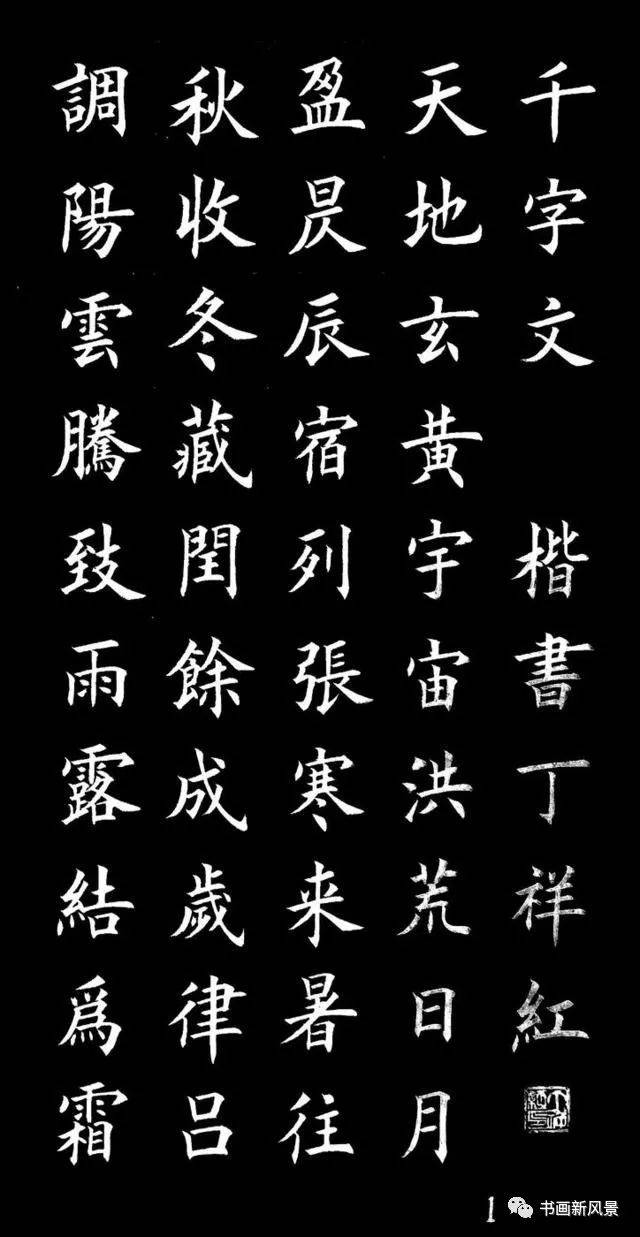 千字文 楷書丁祥紅
天地玄黃宇宙洪荒日月
盈昃辰宿列張寒来暑往
秋收冬藏閏餘成歲律呂
調陽雲騰致雨露結爲霜
1
书画新风景